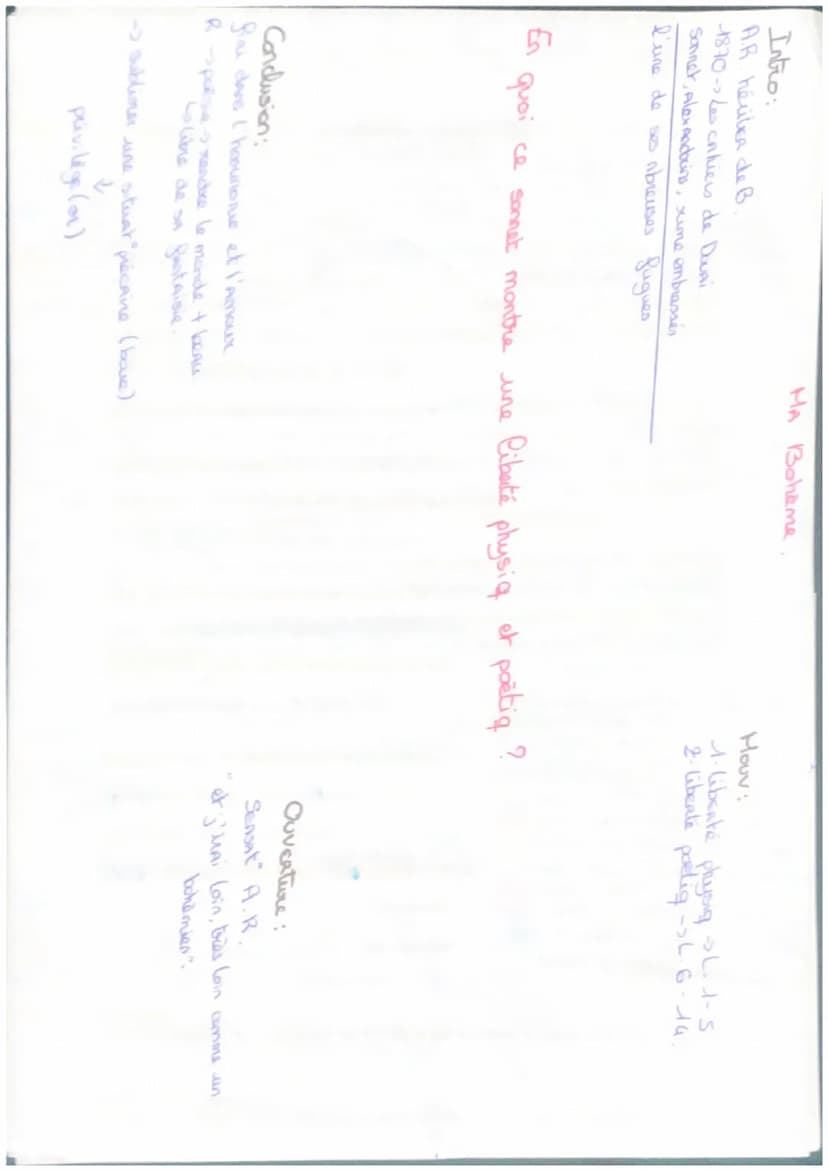 Ma Bohème.
Intro:
A.R héritier de B.
1870 -> Les cahiers de Douai
Sonnet, Alexandrins, rime embrassés
l'une de ses nbreuses fugues
Mouv:
1. liberté physiq -> L. 1-5
2. liberté poétiq -> L. 6-14.
En quoi ce sonnet montre une liberté physiq et poëtiq ?
Conclusion:
dans l'harmonie et l'Amour
R -> poésie -> rendre le monde + beau
↳ libre de sa fantaisie.
-> sublimer une situat° précaire (boue)
↓
privilège (or)
Ouverture:
Sensat° A.R.
"et j'irai loin, très loin comme un
bohémien".